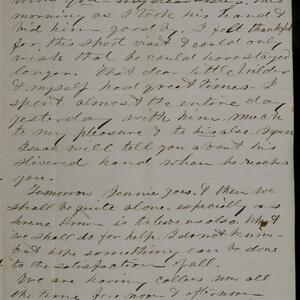 morning as I took his hand &
bid him good by, I felt thankful
for this short visit & could only
wish that he could have stayed
longer. That dear little
& myself had great times. I
spent almost the entire day
yesterday with him, much
to my pleasure & to his also I
Isaac will tell you about his
slivered hand when he reaches
you.
Tomorrow Jennie goes. & then we
shall be quite alone. especially as
Irene is to leave us also. What
we shall do for help. I don't know
but hope something can be done
to the satisfaction of all.
We are having callers now all
the time forenoon & afternoon